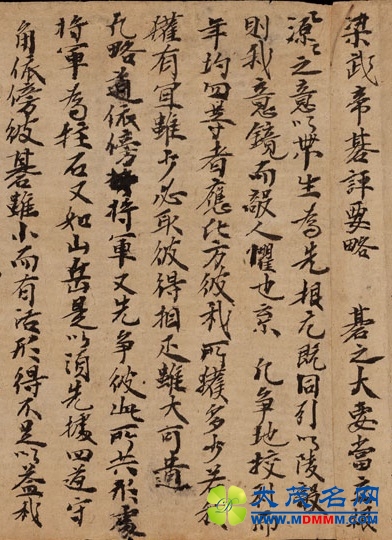 梁武帝碁評要略　碁之大要當立根
源之意以帶生為先根元既固引以陵敵
則我意鏡而敵人懼也　凡爭地校利
者應此方彼我所獲多少若我
獲有宜雖少必取彼得相足雖大可遺
凡略道依傍將軍又先爭彼此所共形處
將軍為柱石又如山岳是以須先據四道守
角依傍彼碁雖小而有活形得不足以益我
大茂名网
WWW.MDMMM.COM